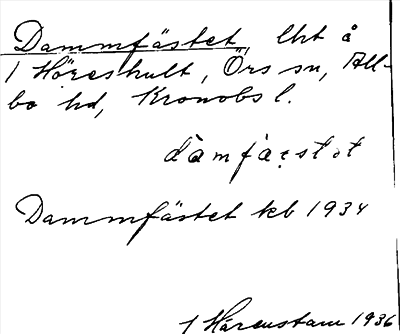 Dammfästet, lht å
1 Höreshult, Örs sn, All-
bo hd, Kronobs l.
dàmfæ̀stət
Dammfästet kb 1934
1 Hårenstam 1936